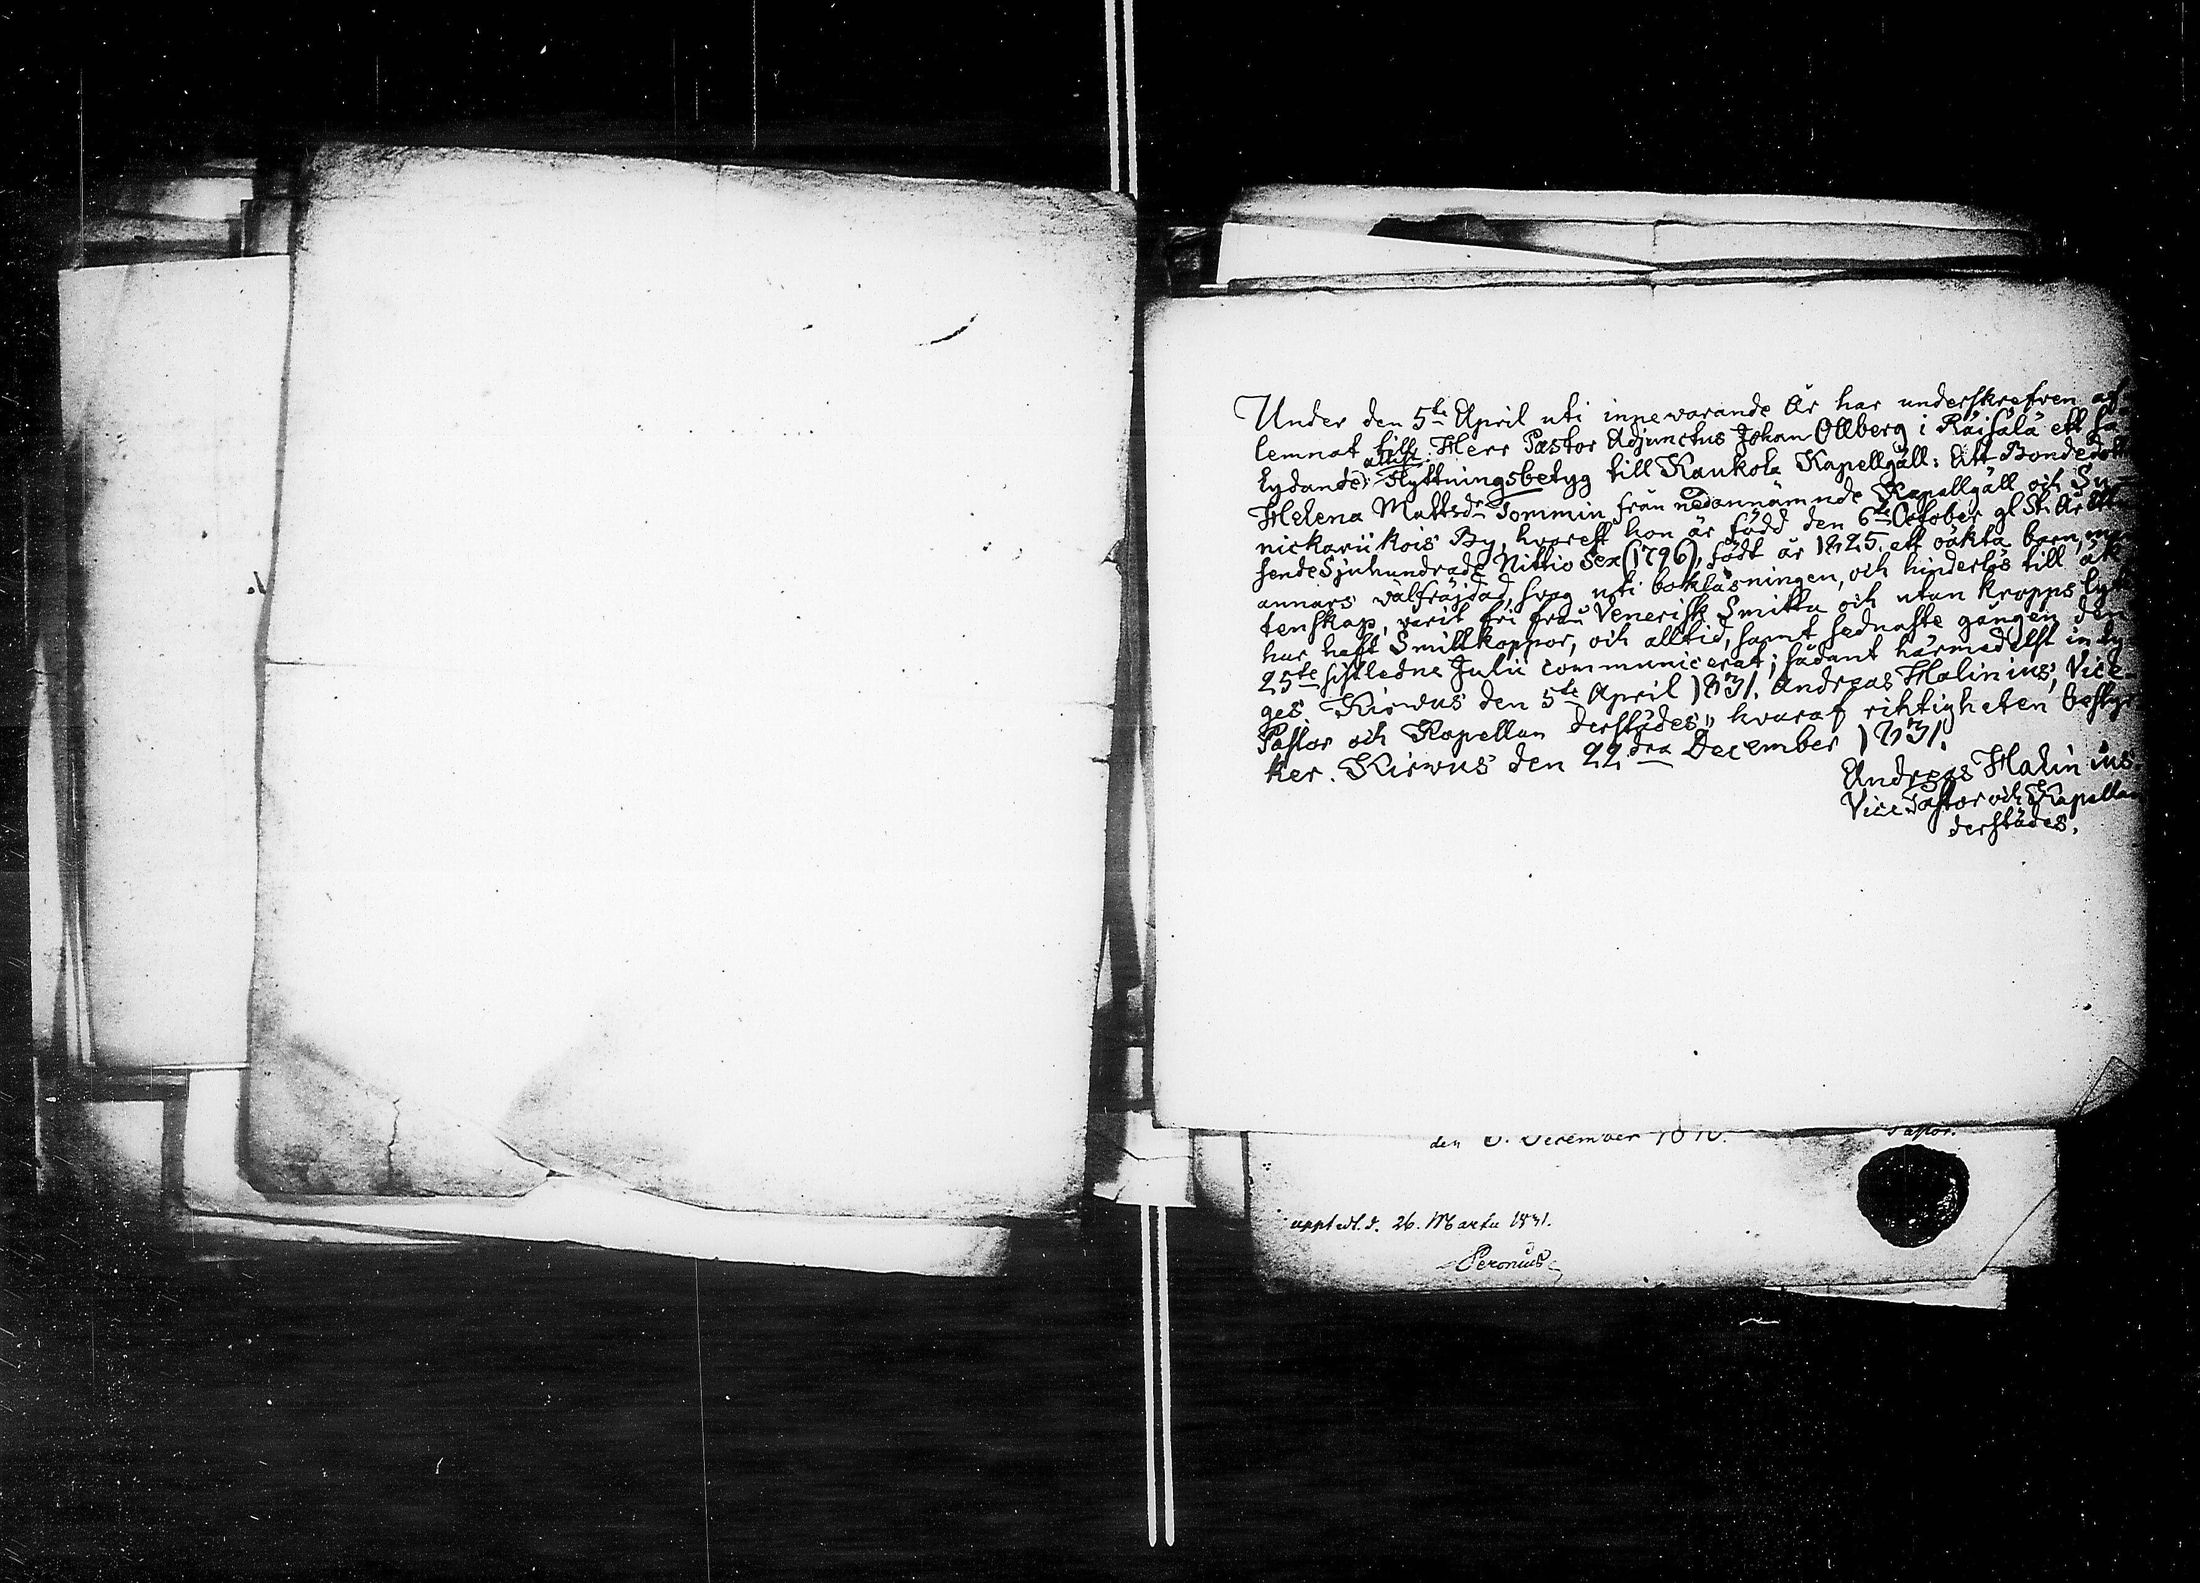 Under den 5te April uti innevarande År har underskrefven af-
lemnat till Herr Pastor Adjunctus Johan Ollberg i Räisälä ett så
lydande: attest Flyttningsbetyg till Kaukola Kapellgäll: Att Bondedott
Helena Mattsdr Tommin från nedannämnde Kapellgäll och Su-
nickarükois By, hvarest hon är född den 6te October gl. St. År ett
sende Sjuhundrade Nittio Sex (1796), födt år 1825 ett oäkta barn, men
annars välfräjdad, svag uti bokläsningen, och hinderlös till äk-
tenskap, varit fri från Venerisk Smitta och utan kropps lyte
har haft Smittkoppor, och alltid, samt sednaste gången den
25te sistledne Julii communicerat; sådant härmedelst inty-
ges. Kirvus den 5te April 1831. Andreas Malinius, Vice-
Pastor och Kapellan derstädes," hvaraf riktigheten bestyr-
ker. Kirwus den 22dra December 1831.
Andreas Malinius.
Vice Pastor och Kapellan
derstädes.
den December
Pastor.
upptedt. d. 26. Martii 1831.
Peronius